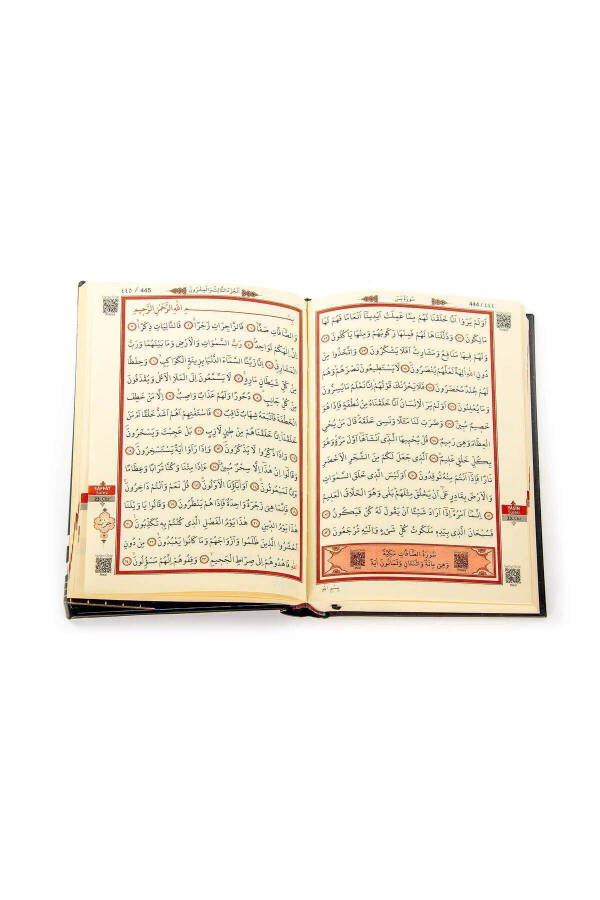 ٤٤٤ / 444
سُورَةُ يٰسٓ
اَوَلَمْ يَرَوْا اَنَّا خَلَقْنَا لَهُمْ مِمَّا عَمِلَتْ اَيْدِينَٓا اَنْعَامًا فَهُمْ لَهَا
مَالِكُونَ وَذَلَّلْنَاهَا لَهُمْ فَمِنْهَا رَكُوبُهُمْ وَمِنْهَا يَأْكُلُونَ
وَلَهُمْ فِيهَا مَنَافِعُ وَمَشَارِبُ اَفَلَا يَشْكُرُونَ وَاتَّخَذُوا مِنْ
دُونِ اللّٰهِ اٰلِهَةً لَعَلَّهُمْ يُنْصَرُونَ لَا يَسْتَطِيعُونَ نَصْرَهُمْ وَهُمْ
لَهُمْ جُنْدٌ مُحْضَرُونَ فَلَا يَحْزُنْكَ قَوْلُهُمْ اِنَّا نَعْلَمُ مَا يُسِرُّونَ
وَمَا يُعْلِنُونَ اَوَلَمْ يَرَ الْاِنْسَانُ اَنَّا خَلَقْنَاهُ مِنْ نُطْفَةٍ فَاِذَا هُوَ
خَصِيمٌ مُبِينٌ وَضَرَبَ لَنَا مَثَلًا وَنَسِيَ خَلْقَهُ قَالَ مَنْ يُحْيِي
الْعِظَامَ وَهِيَ رَمِيمٌ قُلْ يُحْيِيهَا الَّذِٓي اَنْشَاَهَٓا اَوَّلَ مَرَّةٍ وَهُوَ
بِكُلِّ خَلْقٍ عَلِيمٌ اَلَّذِي جَعَلَ لَكُمْ مِنَ الشَّجَرِ الْاَخْضَرِ
نَارًا فَاِذَٓا اَنْتُمْ مِنْهُ تُوقِدُونَ اَوَلَيْسَ الَّذِي خَلَقَ السَّمٰوَاتِ
وَالْاَرْضَ بِقَادِرٍ عَلٰٓى اَنْ يَخْلُقَ مِثْلَهُمْ بَلٰى وَهُوَ الْخَلَّاقُ الْعَلِيمُ
اِنَّمَٓا اَمْرُهُٓ اِذَٓا اَرَادَ شَيْـًٔا اَنْ يَقُولَ لَهُ كُنْ فَيَكُونُ
فَسُبْحَانَ الَّذِي بِيَدِهِ مَلَكُوتُ كُلِّ شَيْءٍ وَاِلَيْهِ تُرْجَعُونَ
سُورَةُ الصَّٓافَّاتِ مَكِّيَّةٌ
وَهِيَ مِائَةٌ وَاثْنَتَانِ وَثَمَانُونَ اٰيَةً
YASİN
23. Cüz
٤٤٥ / 445
اَلْجُزْءُ الثَّالِثُ وَالْعِشْرُونَ
بِسْمِ اللّٰهِ الرَّحْمٰنِ الرَّحِيمِ
وَالصَّٓافَّاتِ صَفًّا فَالزَّاجِرَاتِ زَجْرًا فَالتَّالِيَاتِ ذِكْرًا
اِنَّ اِلٰهَكُمْ لَوَاحِدٌ رَبُّ السَّمٰوَاتِ وَالْاَرْضِ وَمَا بَيْنَهُمَا وَرَبُّ
الْمَشَارِقِ اِنَّا زَيَّنَّا السَّمَٓاءَ الدُّنْيَا بِزِينَةٍ الْكَوَاكِبِ وَحِفْظًا
مِنْ كُلِّ شَيْطَانٍ مَارِدٍ لَا يَسَّمَّعُونَ اِلَى الْمَلَاِ الْاَعْلٰى وَيُقْذَفُونَ
مِنْ كُلِّ جَانِبٍ دُحُورًا وَلَهُمْ عَذَابٌ وَاصِبٌ اِلَّا مَنْ خَطِفَ
الْخَطْفَةَ فَاَتْبَعَهُ شِهَابٌ ثَاقِبٌ فَاسْتَفْتِهِمْ اَهُمْ اَشَدُّ خَلْقًا اَمْ مَنْ
خَلَقْنَا اِنَّا خَلَقْنَاهُمْ مِنْ طِينٍ لَازِبٍ بَلْ عَجِبْتَ وَيَسْخَرُونَ
وَاِذَا ذُكِّرُوا لَا يَذْكُرُونَ وَاِذَا رَاَوْا اٰيَةً يَسْتَسْخِرُونَ
وَقَالُٓوا اِنْ هٰذَٓا اِلَّا سِحْرٌ مُبِينٌ ءَاِذَا مِتْنَا وَكُنَّا تُرَابًا وَعِظَامًا
ءَاِنَّا لَمَبْعُوثُونَ اَوَاٰبَٓاؤُنَا الْاَوَّلُونَ قُلْ نَعَمْ وَاَنْتُمْ دَاخِرُونَ
فَاِنَّمَا هِيَ زَجْرَةٌ وَاحِدَةٌ فَاِذَا هُمْ يَنْظُرُونَ وَقَالُوا يَا وَيْلَنَا
هٰذَا يَوْمُ الدِّينِ هٰذَا يَوْمُ الْفَصْلِ الَّذِي كُنْتُمْ بِهِ تُكَذِّبُونَ
اُحْشُرُوا الَّذِينَ ظَلَمُوا وَاَزْوَاجَهُمْ وَمَا كَانُوا يَعْبُدُونَ مِنْ دُونِ
اللّٰهِ فَاهْدُوهُمْ اِلٰى صِرَاطِ الْجَحِيمِ وَقِفُوهُمْ اِنَّهُمْ مَسْؤُ۫لُونَ
SAFFAT
23. Cüz